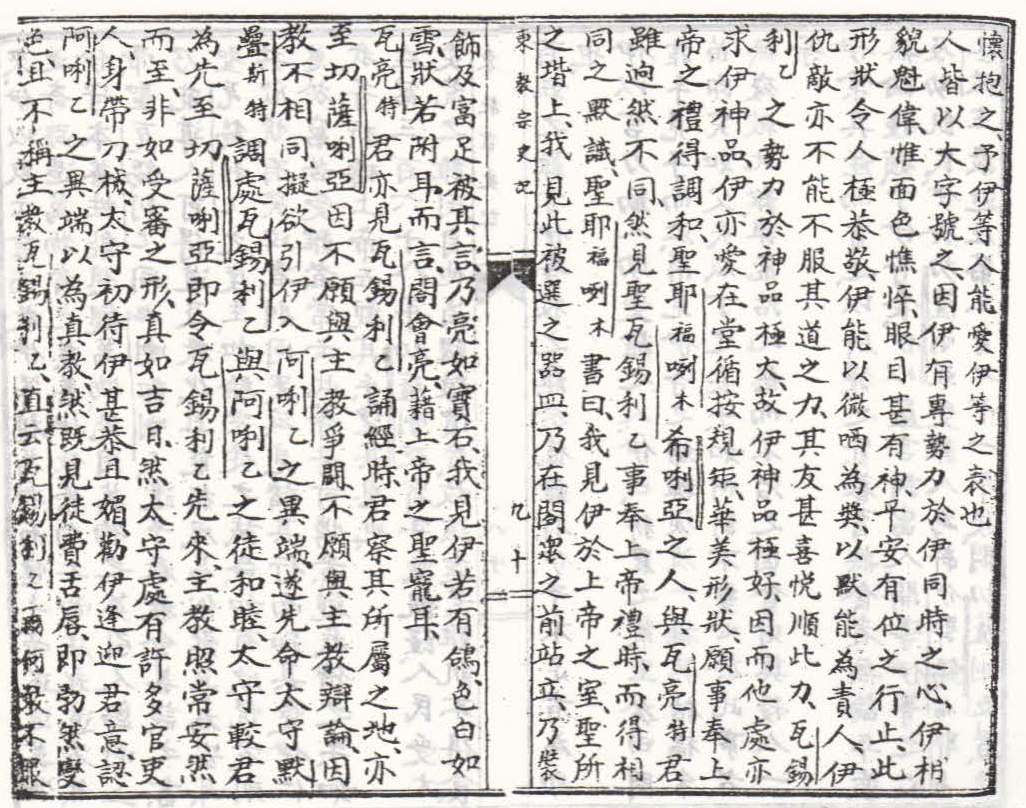 懷抱之、予伊等人能愛伊等之衷也
人皆以大字號之、因伊有專勢力於伊同時之心、伊相
貌魁偉、惟面色憔悴、眼目甚有神、平安有位之行止、此
形狀令人極恭敬、伊能以微哂為獎、以默能為責人、伊
仇敵亦不能不服其道之力、其友甚喜悅順此力、瓦錫
利乙之勢力於神品極大、故伊神品極好、因而他處亦
求伊神品、伊亦愛在堂循按規矩、華美形狀、願事奉上
帝之禮得調和、聖耶福唎木希唎亞之人、與瓦亮特君
雖逈然不同、然見聖瓦錫利乙事奉上帝禮時、而得相
同之默識、聖耶福唎木書曰、我見伊於上帝之室、聖所
之堦上、我見此被選之器皿、乃在閤眾之前站立、乃裝
東教宗史記
九十
飾及富足被其言、乃亮如寶石、我見伊若有鴿、色白如
雪、狀若附耳、而言、閤會亮、藉上帝之聖寵耳、
瓦亮特君亦見瓦錫利乙誦經時、君察其所屬之地、亦
至切薩唎亞、因不願與主教爭鬪、不願與主教辯論、因
教不相同、擬欲引伊入阿唎乙之異端、遂先命太守默
疊斯特調處瓦錫利乙、與阿唎乙之徒和睦、太守較君
為先至切薩唎亞、即令瓦錫利乙先來、主教照常安然
而至、非如受審之形、真如吉日、然太守處有許多官吏
人、身帶刀械、太守初待伊甚恭且媚、勸伊逢迎君意、認
阿唎乙之異端以為真教、然既見徒費舌唇、即勃然變
色、且不稱主教瓦錫利乙、直云瓦錫利乙爾何敢不跟